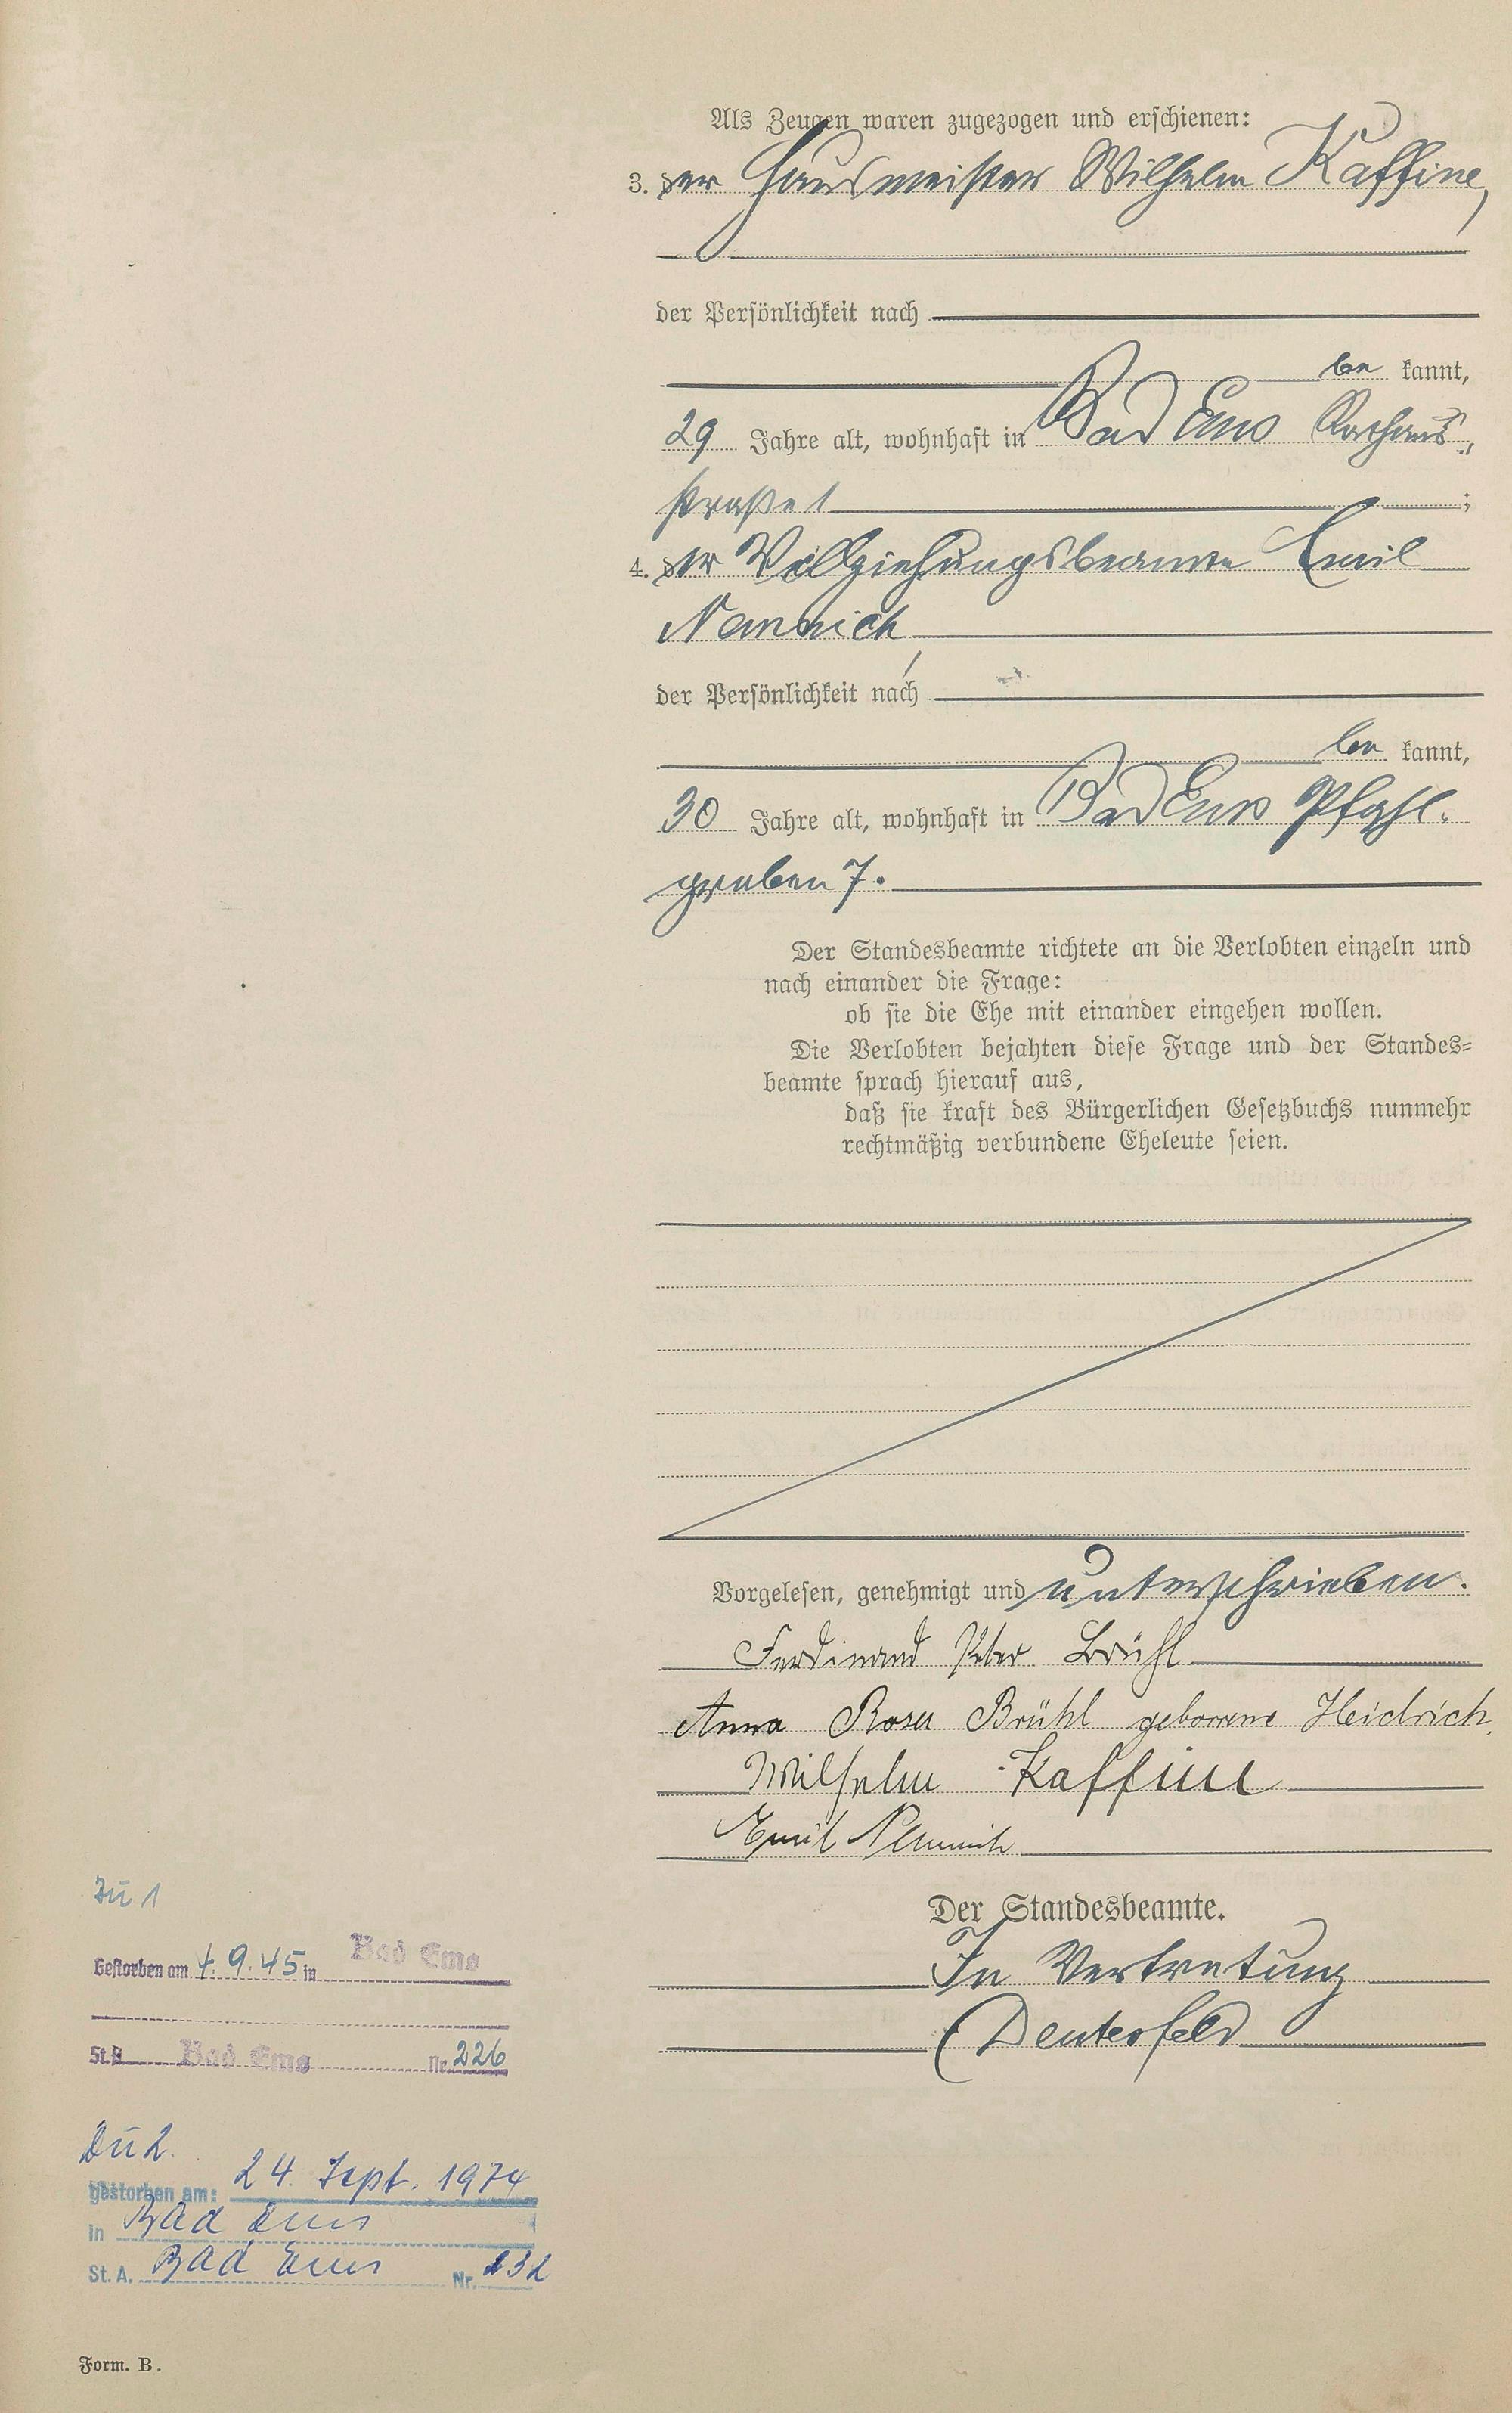 Als Zeugen waren zugezogen und erschienen:
3. der Hausmeister Wilhelm Kaffine,
der Persönlichkeit nach
be kannt,
29 Jahre alt, wohnhaft in Bad Ems Rathaus-,
straße 1 ;
4. der Vollziehungsbeamte Emil
der Persönlichkeit nach
be kannt,
30 Jahre alt, wohnhaft in Bad Ems Pfahl-
graben 7.
Der Standesbeamte richtete an die Verlobten einzeln und
nach einander die Frage:
ob sie die Ehe mit einander eingehen wollen.
Die Verlobten bejahten diese Frage und der Standes=
beamte sprach hierauf aus,
daß sie kraft des Bürgerlichen Gesetzbuchs nunmehr
rechtmäßig verbundene Eheleute seien.
Vorgelesen, genehmigt und unterschrieben.
Ferdinand Peter Brühl
Anna Rosa Brühl geborene Heidrich.
Wilhelm Kaffine
Emil
Der Standesbeamte.
In Vertretung
Deutesfeld
Zu 1
Gestorben am 4. 9. 45 in Bad Ems
St.A. Bad Ems Nr. 226
Zu 2.
gestorben am: 24. Sept. 1974
in Bad Ems
St. A. Bad Ems Nr. 232
Form. B.